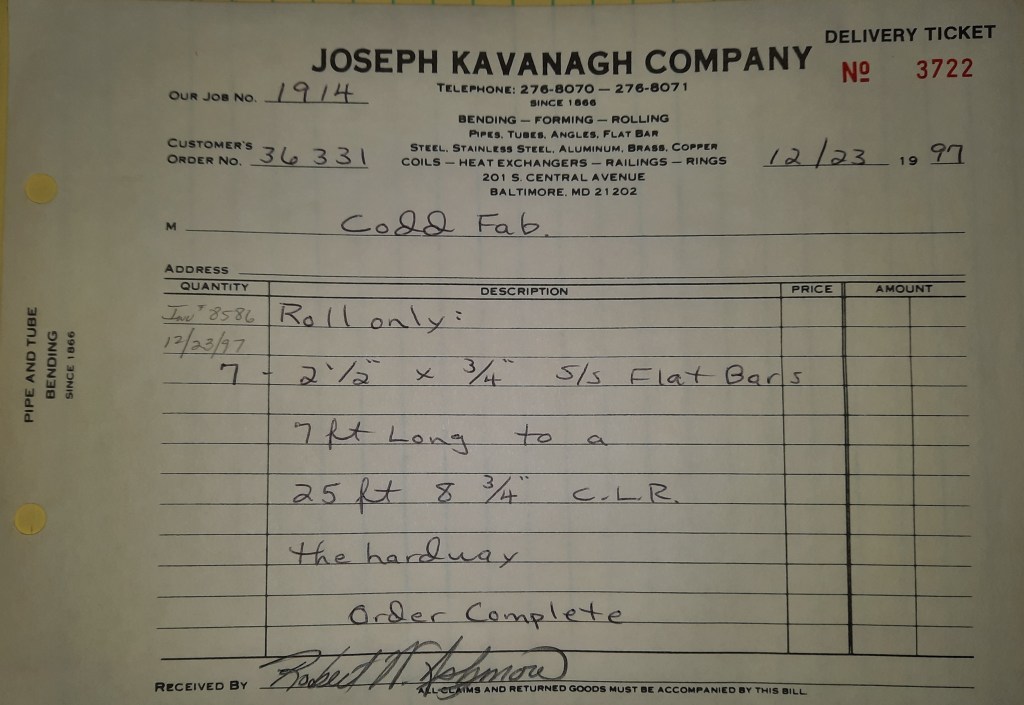 DELIVERY TICKET
JOSEPH KAVANAGH COMPANY
Nº 3722
OUR JOB NO. 1914
TELEPHONE: 276-8070 — 276-8071
SINCE 1866
BENDING — FORMING — ROLLING
PIPES, TUBES, ANGLES, FLAT BAR
CUSTOMER'S
ORDER NO. 36331
STEEL, STAINLESS STEEL, ALUMINUM, BRASS, COPPER
COILS — HEAT EXCHANGERS — RAILINGS — RINGS
12/23 19 97
201 S. CENTRAL AVENUE
BALTIMORE, MD 21202
M Codd Fab.
ADDRESS
QUANTITY DESCRIPTION PRICE AMOUNT
Inv # 8586 Roll only:
12/23/97
7 - 2 1/2" x 3/4" S/S Flat Bars
7 ft Long to a
25 ft 8 3/4" C.L.R.
the hardway
Order Complete
RECEIVED BY Robert W. Ashmore
ALL CLAIMS AND RETURNED GOODS MUST BE ACCOMPANIED BY THIS BILL
PIPE AND TUBE
BENDING
SINCE 1866